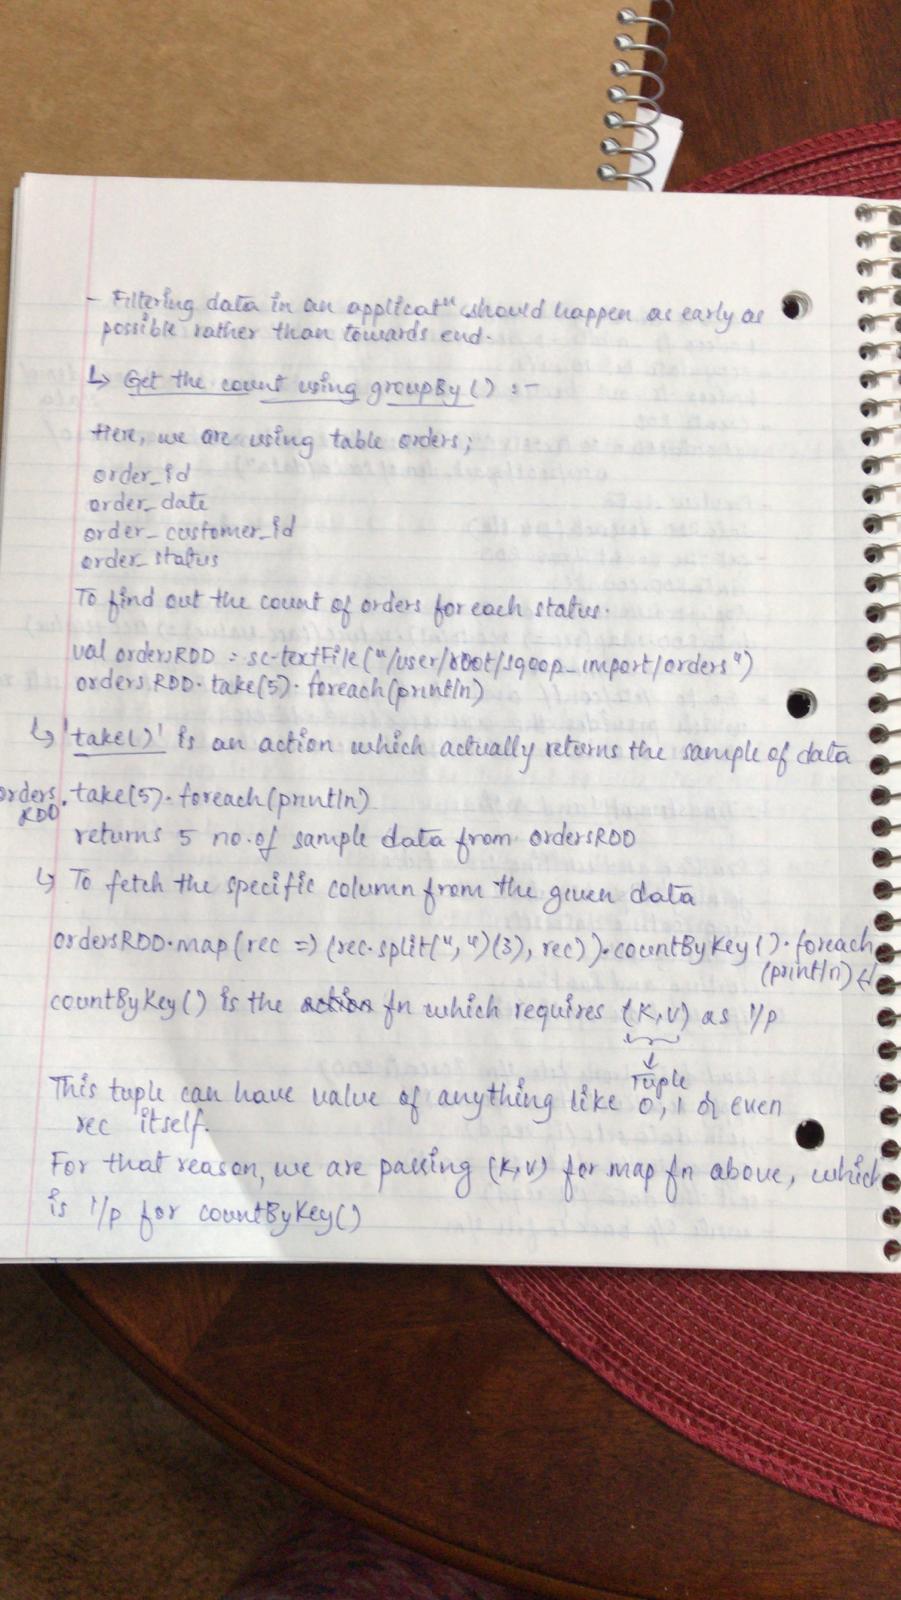 - Filtering data in an applicatⁿ should happen as early as
possible rather than towards end.
↳ Get the count using groupBy() :-
Here, we are using table orders;
order_id
order_date
order_customer_id
order_status
To find out the count of orders for each status.
val ordersRDD = sc.textFile("/user/root/sqoop_import/orders")
orders RDD.take(5).foreach(println)
↳ 'take()' is an action which actually returns the sample of data
orders RDD.take(5).foreach(println)
returns 5 no.of sample data from ordersRDD
↳ To fetch the specific column from the given data
ordersRDD.map(rec => (rec.split(",")(3), rec)).countByKey().foreach
(println)
countByKey() is the action fn which requires (K,V) as i/p
↓
Tuple
This tuple can have value of anything like 0, 1 or even
rec itself.
For that reason, we are passing (K,V) for map fn above, which
is i/p for countByKey()